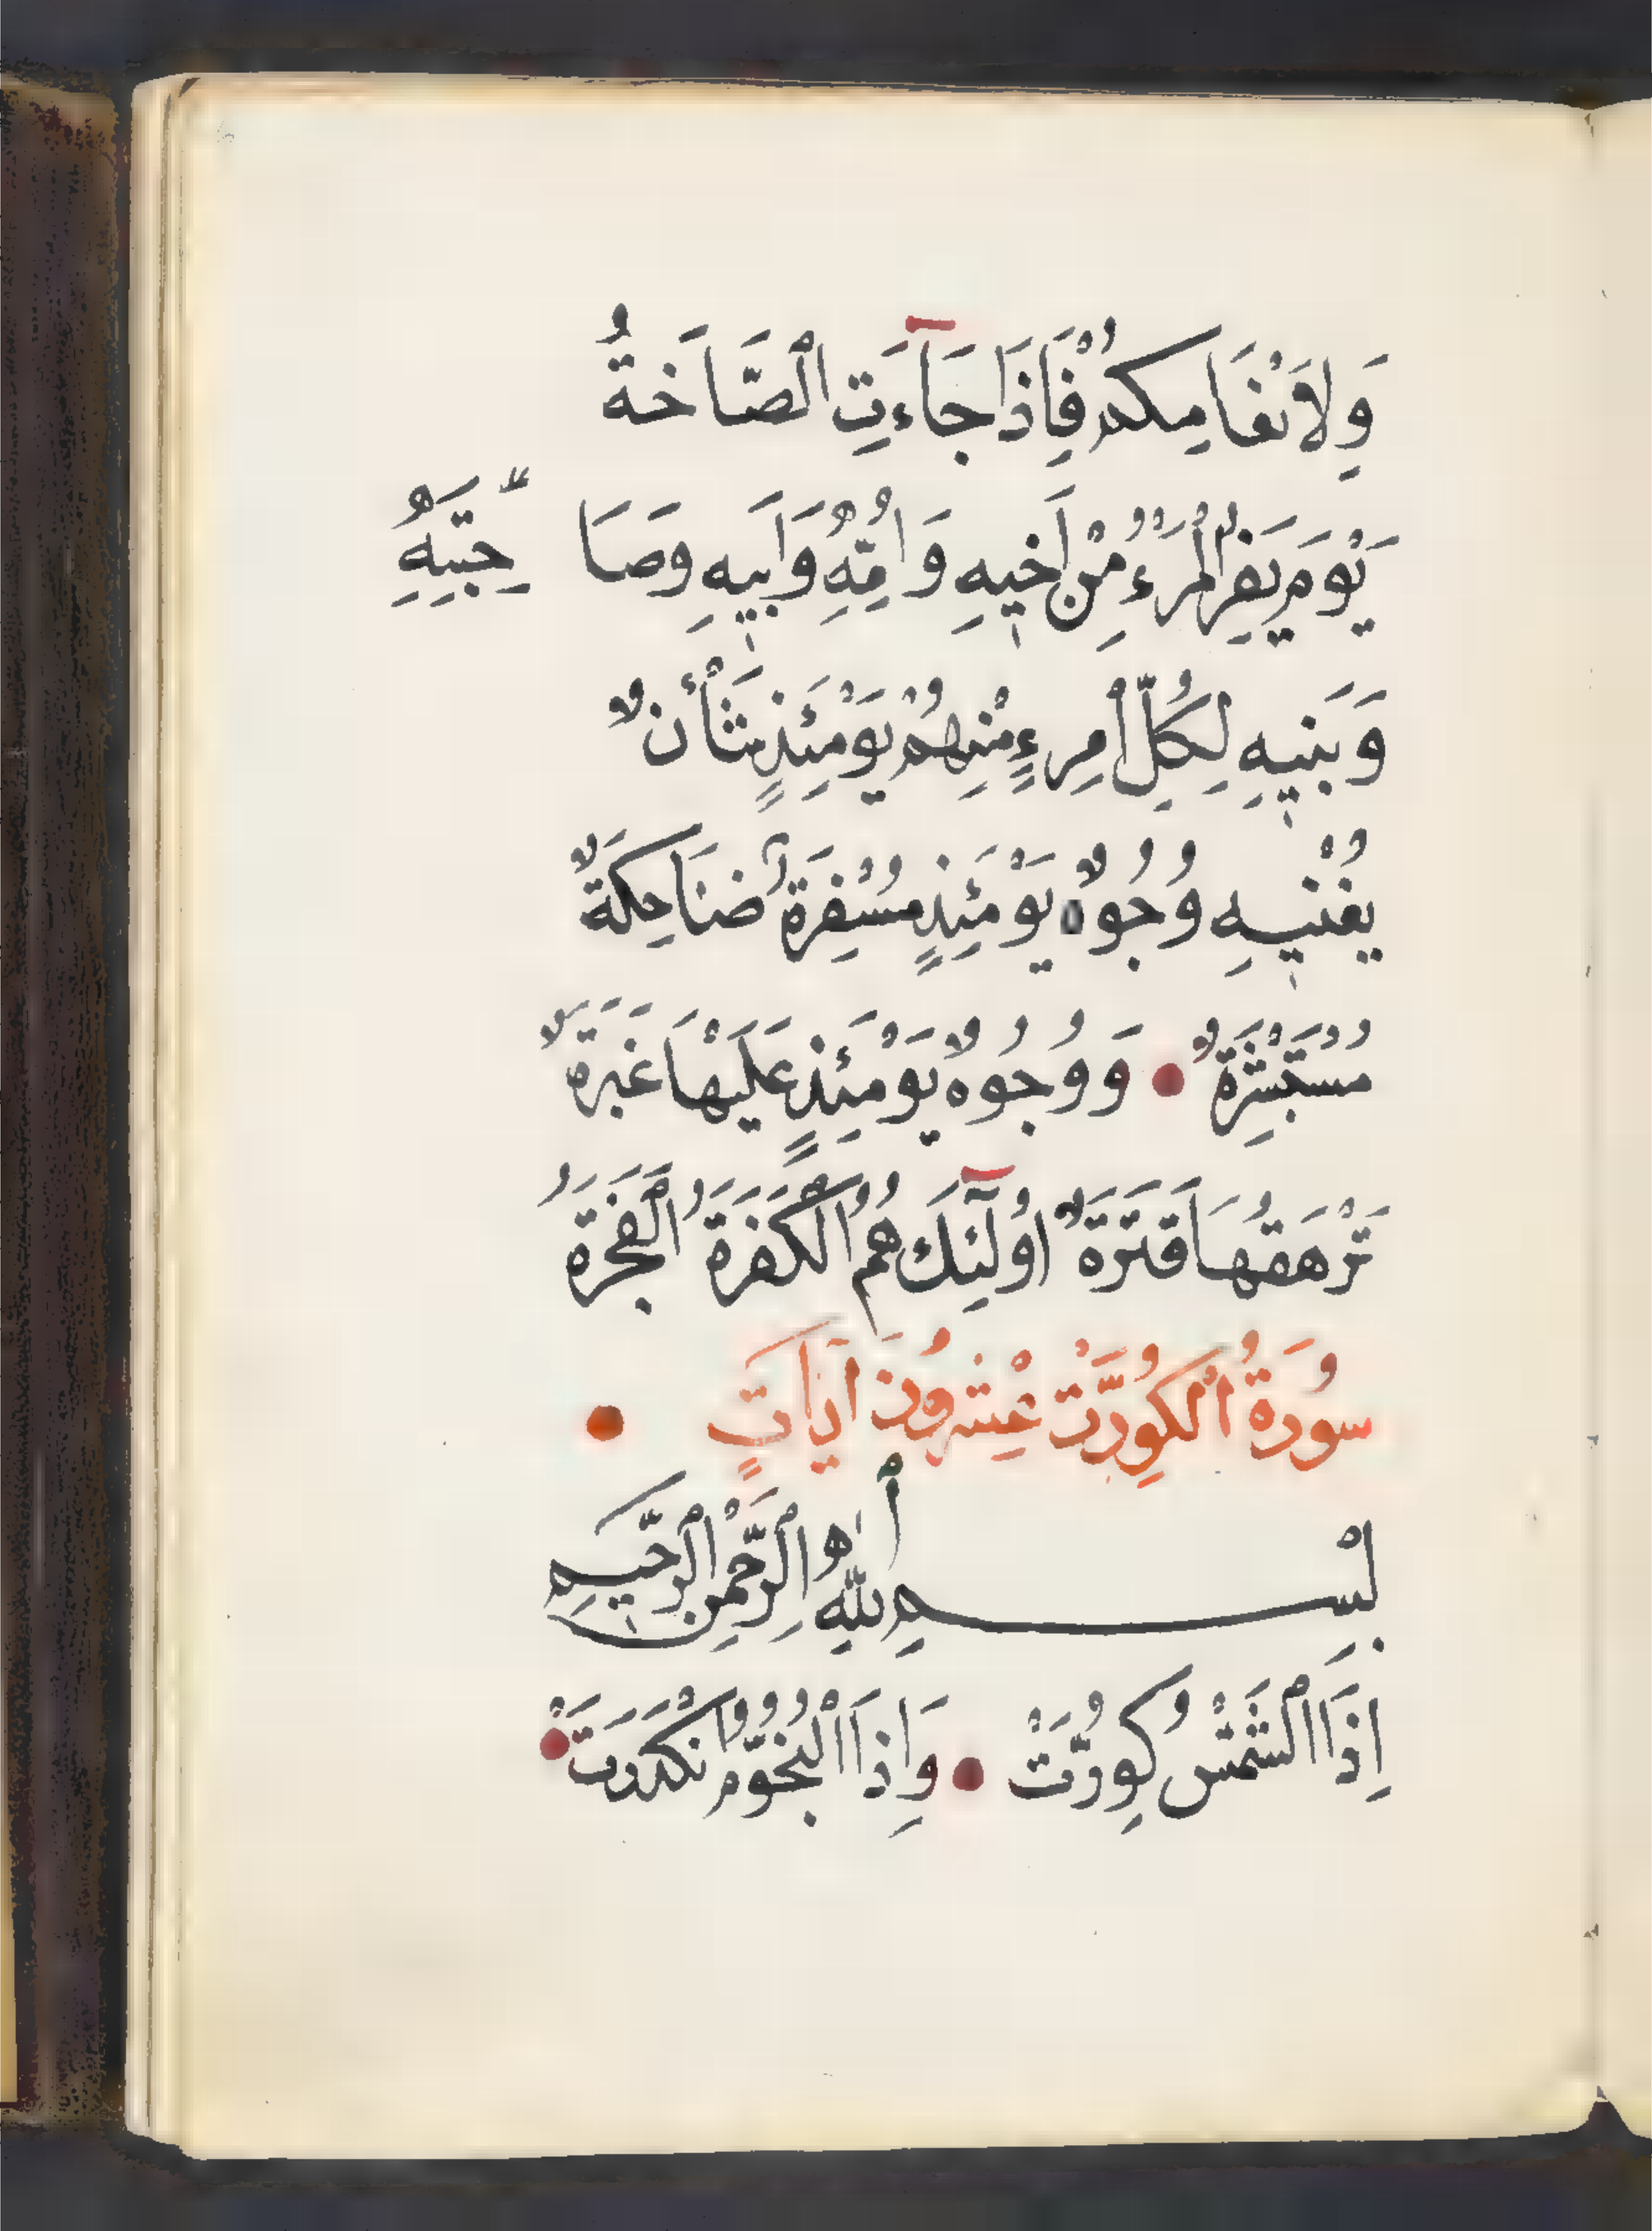 وَلِاَنْعَامِكُمْ فَاِذَا جَآءَتِ الصَّاخَّةُ
يَوْمَ يَفِرُّ الْمَرْءُ مِنْ اَخِيهِ وَاُمِّهِ وَاَبِيهِ وَصَا حِبَتِهِ
وَبَنِيهِ لِكُلِّ امْرِءٍ مِنْهُمْ يَوْمَئِذٍ شَأْنٌ
يُغْنِيهِ وُجُوهٌ يَوْمَئِذٍ مُسْفِرَةٌ ضَاحِكَةٌ
مُسْتَبْشِرَةٌ وَوُجُوهٌ يَوْمَئِذٍ عَلَيْهَا غَبَرَةٌ
تَرْهَقُهَا قَتَرَةٌ اُولٰٓئِكَ هُمُ الْكَفَرَةُ الْفَجَرَةُ
سُورَةُ الْكُوِّرَتْ عِشْرُونَ آيَاتٍ
بِسْمِ اللّٰهِ الرَّحْمٰنِ الرَّحِيمِ
اِذَا الشَّمْسُ كُوِّرَتْ وَاِذَا النُّجُومُ انْكَدَرَتْ